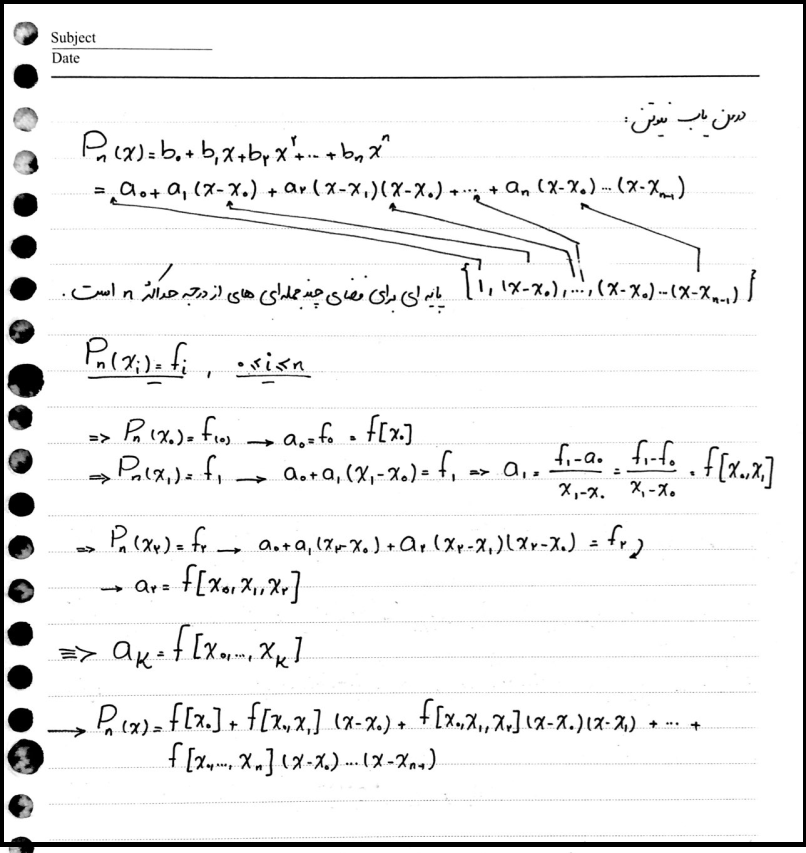 Subject
Date
درون یاب نیوتن:
Pₙ(x) = b₀ + b₁x + b₂x² + ... + bₙxⁿ
= a₀ + a₁(x-x₀) + a₂(x-x₁)(x-x₀) + ... + aₙ(x-x₀)...(x-xₙ₋₁)
{1, (x-x₀), ..., (x-x₀)...(x-xₙ₋₁)} پایه ای برای فضای چند جمله ای های از درجه حداکثر n است.
Pₙ(xᵢ) = fᵢ , ۰≤i≤n
=> Pₙ(x₀) = f(۰) → a₀ = f₀ = f[x₀]
=> Pₙ(x₁) = f₁ → a₀ + a₁(x₁-x₀) = f₁ => a₁ = (f₁-a₀)/(x₁-x₀) = (f₁-f₀)/(x₁-x₀) = f[x₀,x₁]
=> Pₙ(x₂) = f₂ → a₀ + a₁(x₂-x₀) + a₂(x₂-x₁)(x₂-x₀) = f₂
→ a₂ = f[x₀, x₁, x₂]
≡> aₖ = f[x₀, ..., xₖ]
→ Pₙ(x) = f[x₀] + f[x₀,x₁](x-x₀) + f[x₀,x₁,x₂](x-x₀)(x-x₁) + ... +
f[x₀, ..., xₙ](x-x₀)...(x-xₙ₋₁)